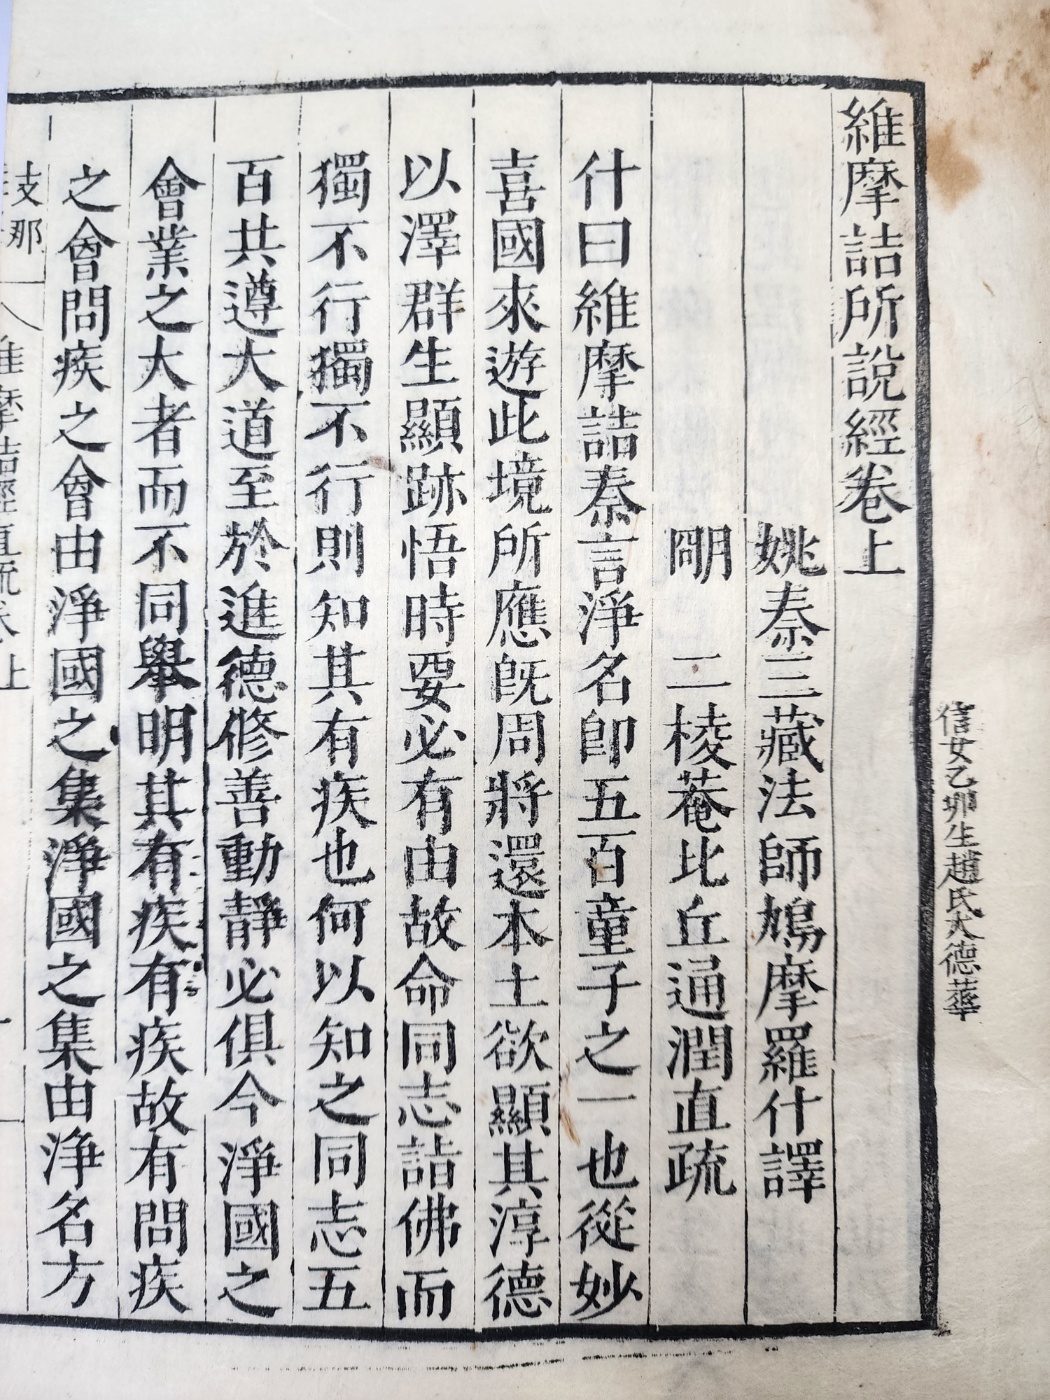 信女乙卯生趙氏大德蕐
維摩詰所說經卷上
姚秦三藏法師鳩摩羅什譯
明 二楞菴比丘通潤直疏
什曰維摩詰秦言淨名卽五百童子之一也從妙
喜國來遊此境所應旣周將還本土欲顯其淳德
以澤群生顯跡悟時要必有由故命同志詰佛而
獨不行獨不行則知其有疾也何以知之同志五
百共遵大道至於進德修善動靜必俱今淨國之
會業之大者而不同舉明其有疾有疾故有問疾
之會問疾之會由淨國之集淨國之集由淨名方
支那
維摩詰經直疏卷上